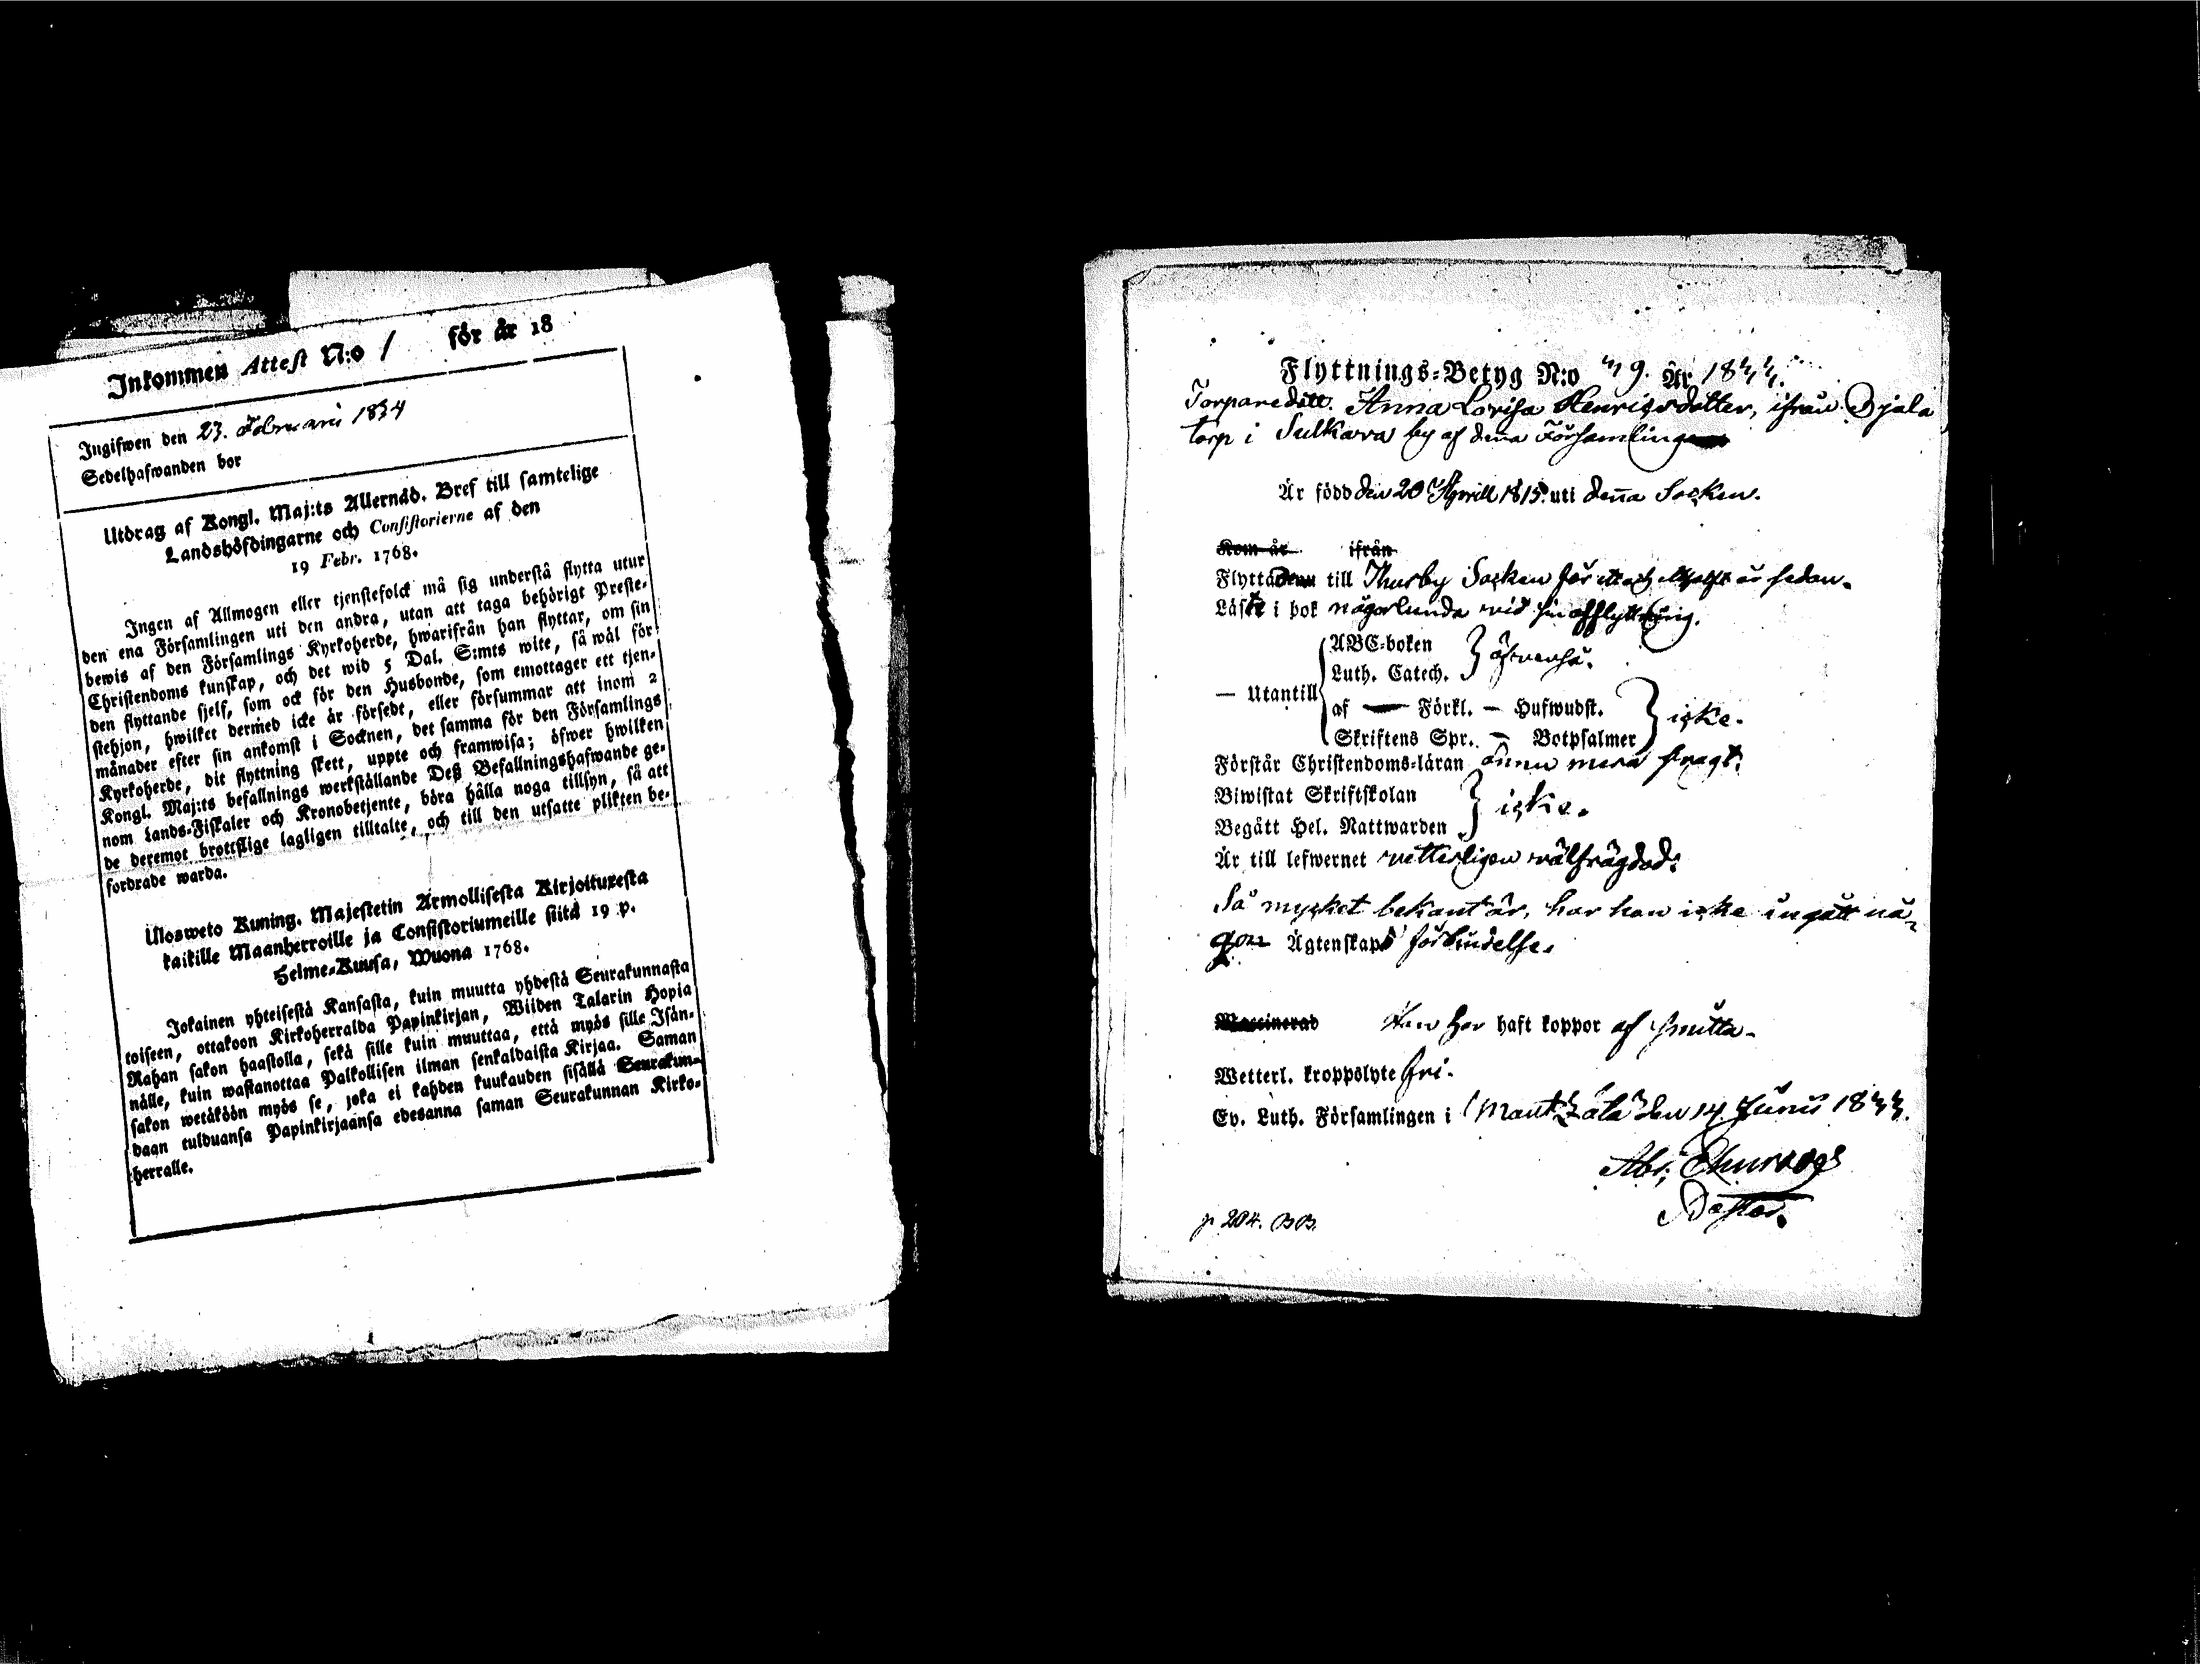 Inkommen Attest N:o 1 för år 18
Ingifwen den 23. Februarii 1834
Sedelhafwanden bor
Utdrag af Kongl. Maj:ts Allernåd. Bref till samtelige
Landshöfdingarne och Consistorierne af den
19 Febr. 1768.
Ingen af Allmogen eller tjenstefolck må sig understå flytta utur
den ena Församlingen uti den andra, utan att taga behörigt Preste-
bewis af den Församlings Kyrkoherde, hwarifrån han flyttar, om sin
Christendoms kunskap, och det wid 5 Dal. S:mts wite, så wäl för
den flyttande sjelf, som ock för den Husbonde, som emottager ett tjen-
stehjon, hwilket dermed icke är försedt, eller försummar att inom 2
månader efter sin ankomst i Socknen, det samma för den Församlings
Kyrkoherde, dit flyttning skett, uppte och framwisa; öfwer hwilken
Kongl. Maj:ts befallnings werkställande Deß Befallningshafwande ge-
nom Lands-Fiskaler och Kronobetjente, böra hålla noga tillsyn, så att
de deremot brottslige lagligen tilltalte, och till den utsatte plikten be-
fordrade warda.
Ulosweto Kuning. Majestetin Armollisesta Kirjoituxesta
kaikille Maanherroille ja Consistoriumeille siitä 19 p.
Helme-Kuusa, Wuona 1768.
Jokainen yhteisestä Kansasta, kuin muutta yhdestä Seurakunnasta
toiseen, ottakoon Kirkoherralda Papinkirjan, Wiiden Talarin Hopia
Rahan sakon haastolla, sekä sille kuin muuttaa, että myös sille Isän-
nälle, kuin wastanottaa Palkollisen ilman senkaldaista Kirjaa. Saman
sakon wetäköön myös se, joka ei kahden kuukauden sisällä Seurakun-
daan tulduansa Papinkirjaansa edesanna saman Seurakunnan Kirko-
herralle.
Flyttnings-Betyg N:o 49. År 1844.
Torparedott. Anna Lovisa Henricsdotter, ifrån Bjala
torp i Sulkava by af denna Församling
Är född den 20 Aprill 1815. uti denna Socken.
Kom år ifrån
Flyttade till Thusby Socken för ett och ett halft år sedan.
Läste i bok någorlunda vid sin afflyttning.
ABC-boken
Luth. Catech. } äfvenså.
— Utantill
af — Förkl. — Hufwudst.
Skriftens Spr. — Botpsalmer } icke.
Förstår Christendoms-läran ännu mera swagt.
Biwistat Skriftskolan
Begått Hel. Nattwarden } icke.
Är till lefwernet vetterligen välfrägdad.
Så mycket bekant är, har hon icke ingått nå-
gon Ägtenskaps förbindelse.
Hon har haft koppor af smitta.
Wetterl. kroppslyte fri.
Ev. Luth. Församlingen i Mäntzälä den 14 Junii 1844.
Pastor.
p 204. BB.